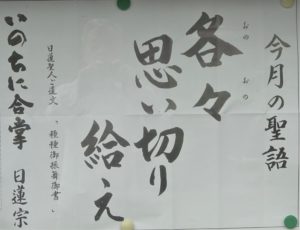 今月の聖語
おのおの
各々
思い切り
給え
日蓮聖人ご遺文
「種種御振舞御書」
いのちに合掌 日蓮宗